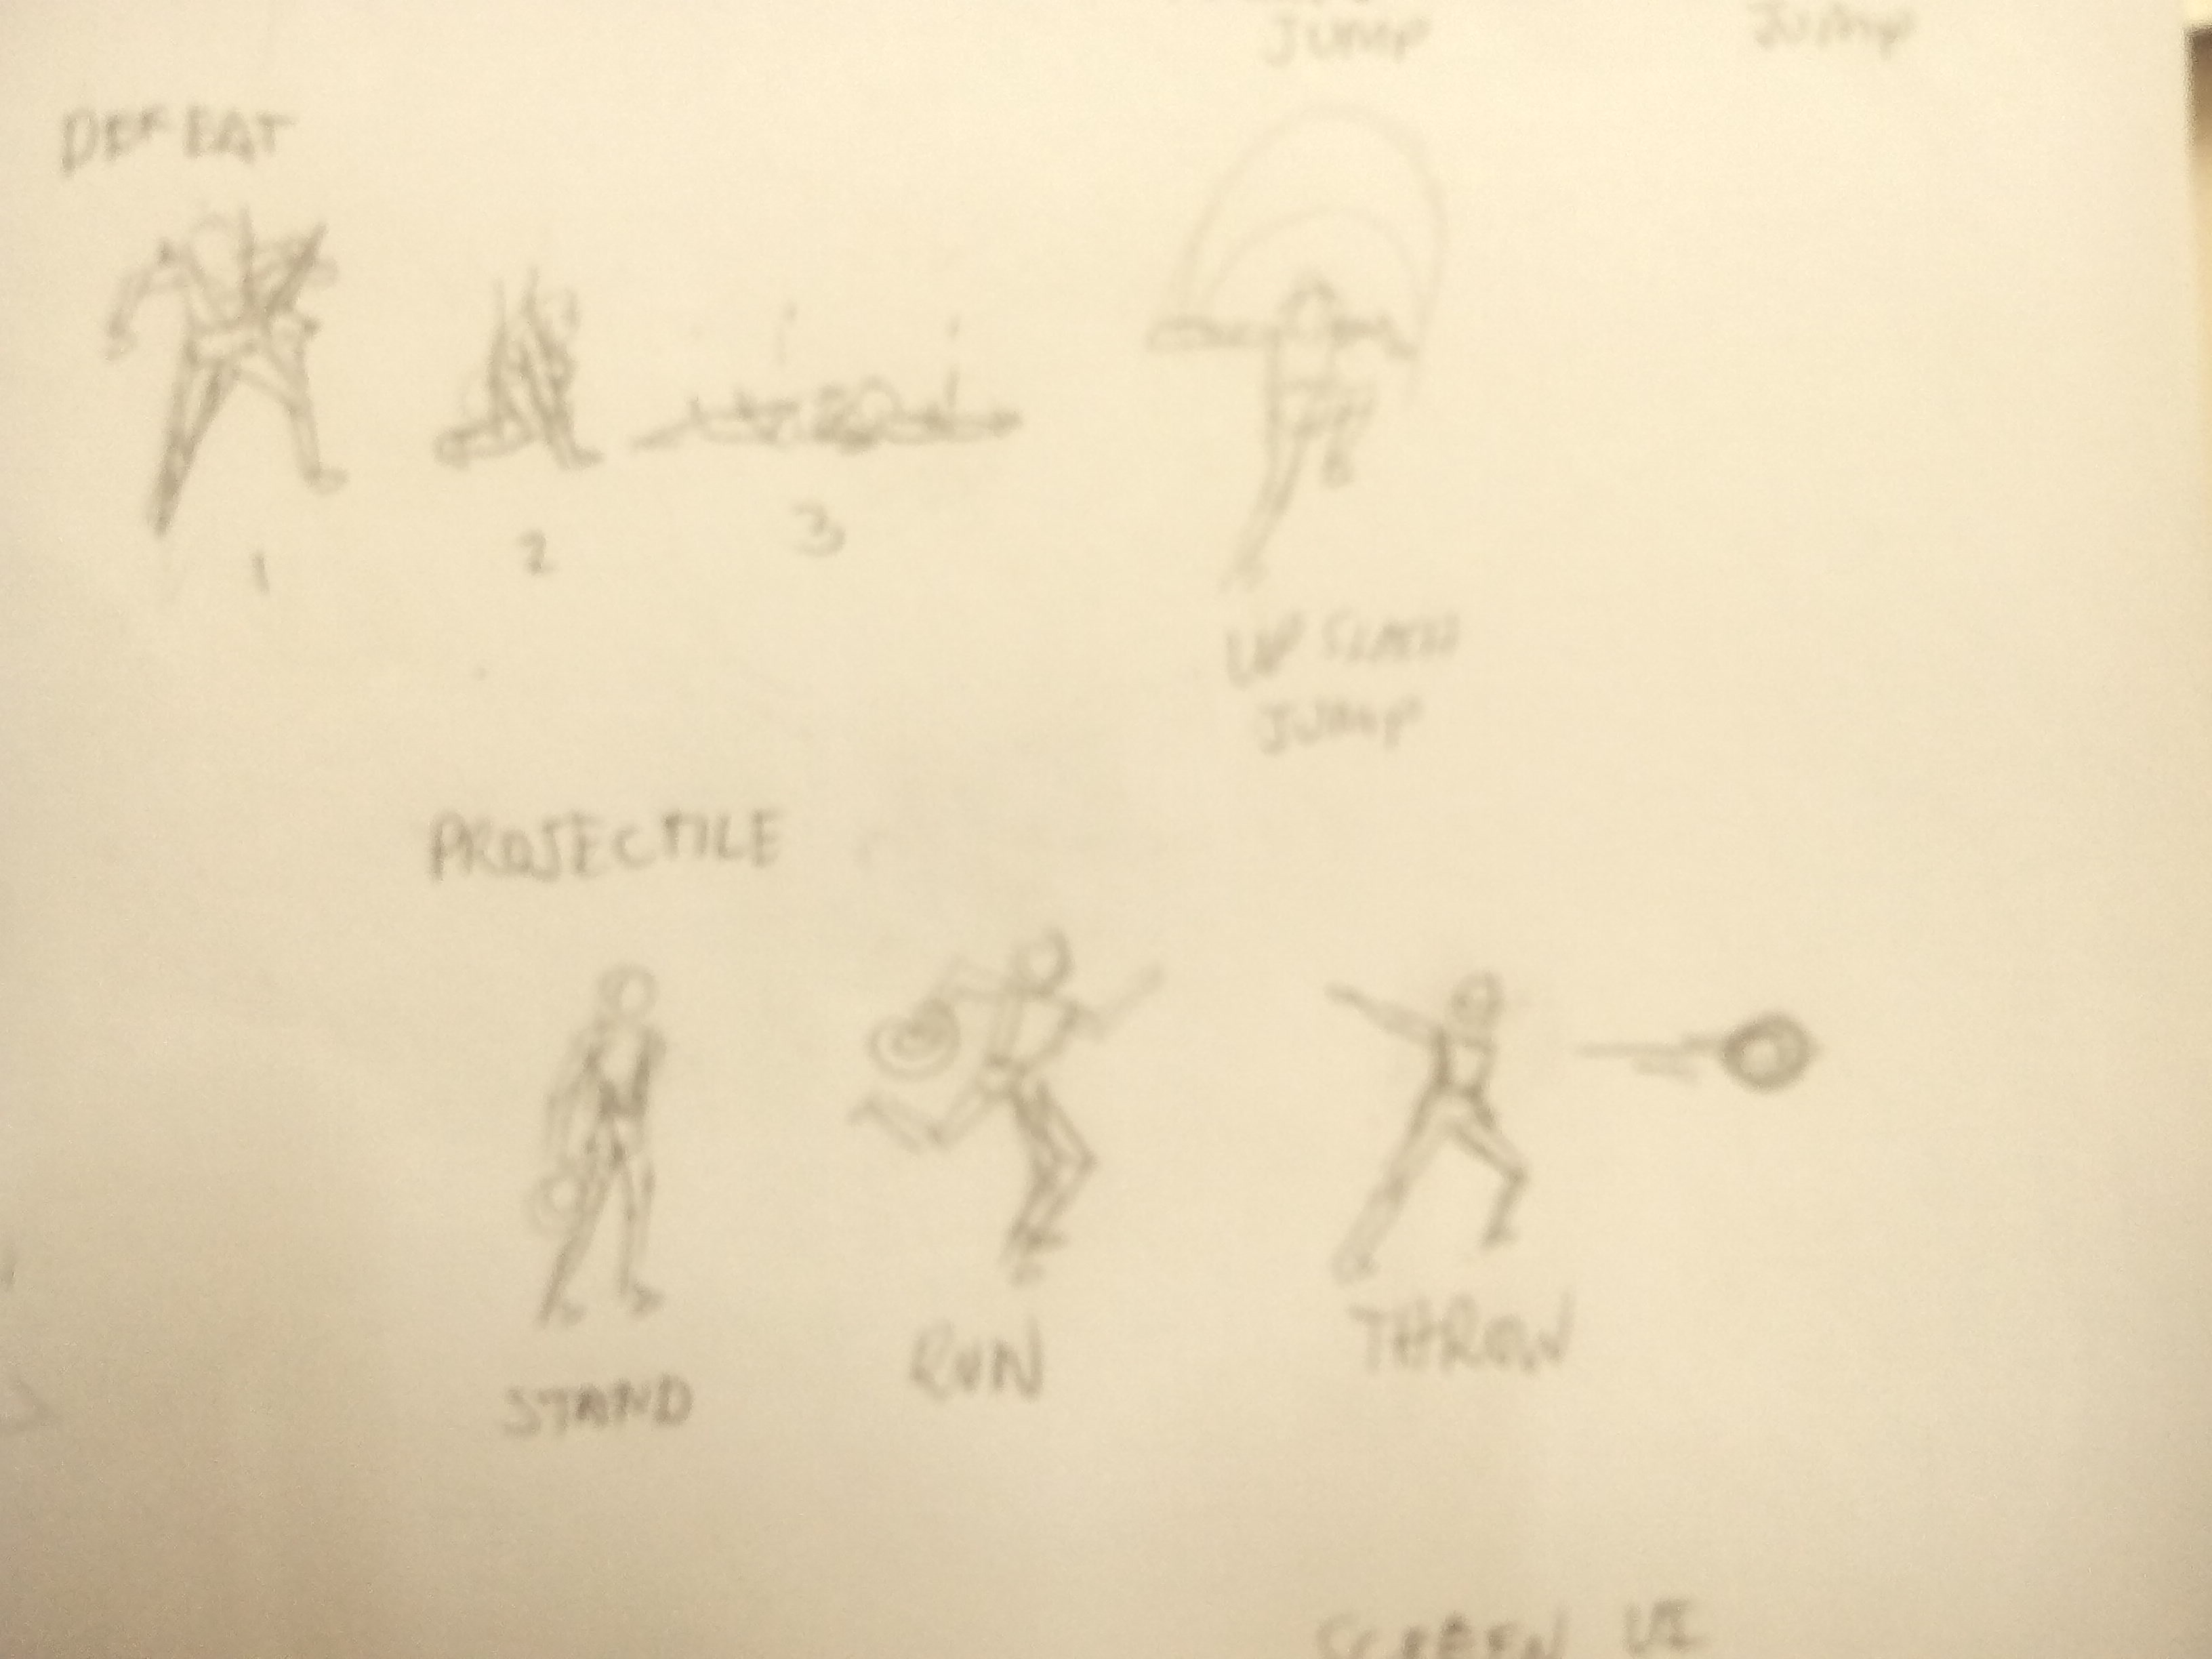 JUMP
JUMP
DEFEAT
1
2
3
UP SLASH
JUMP
PROJECTILE
STAND
RUN
THROW
SCREEN UI